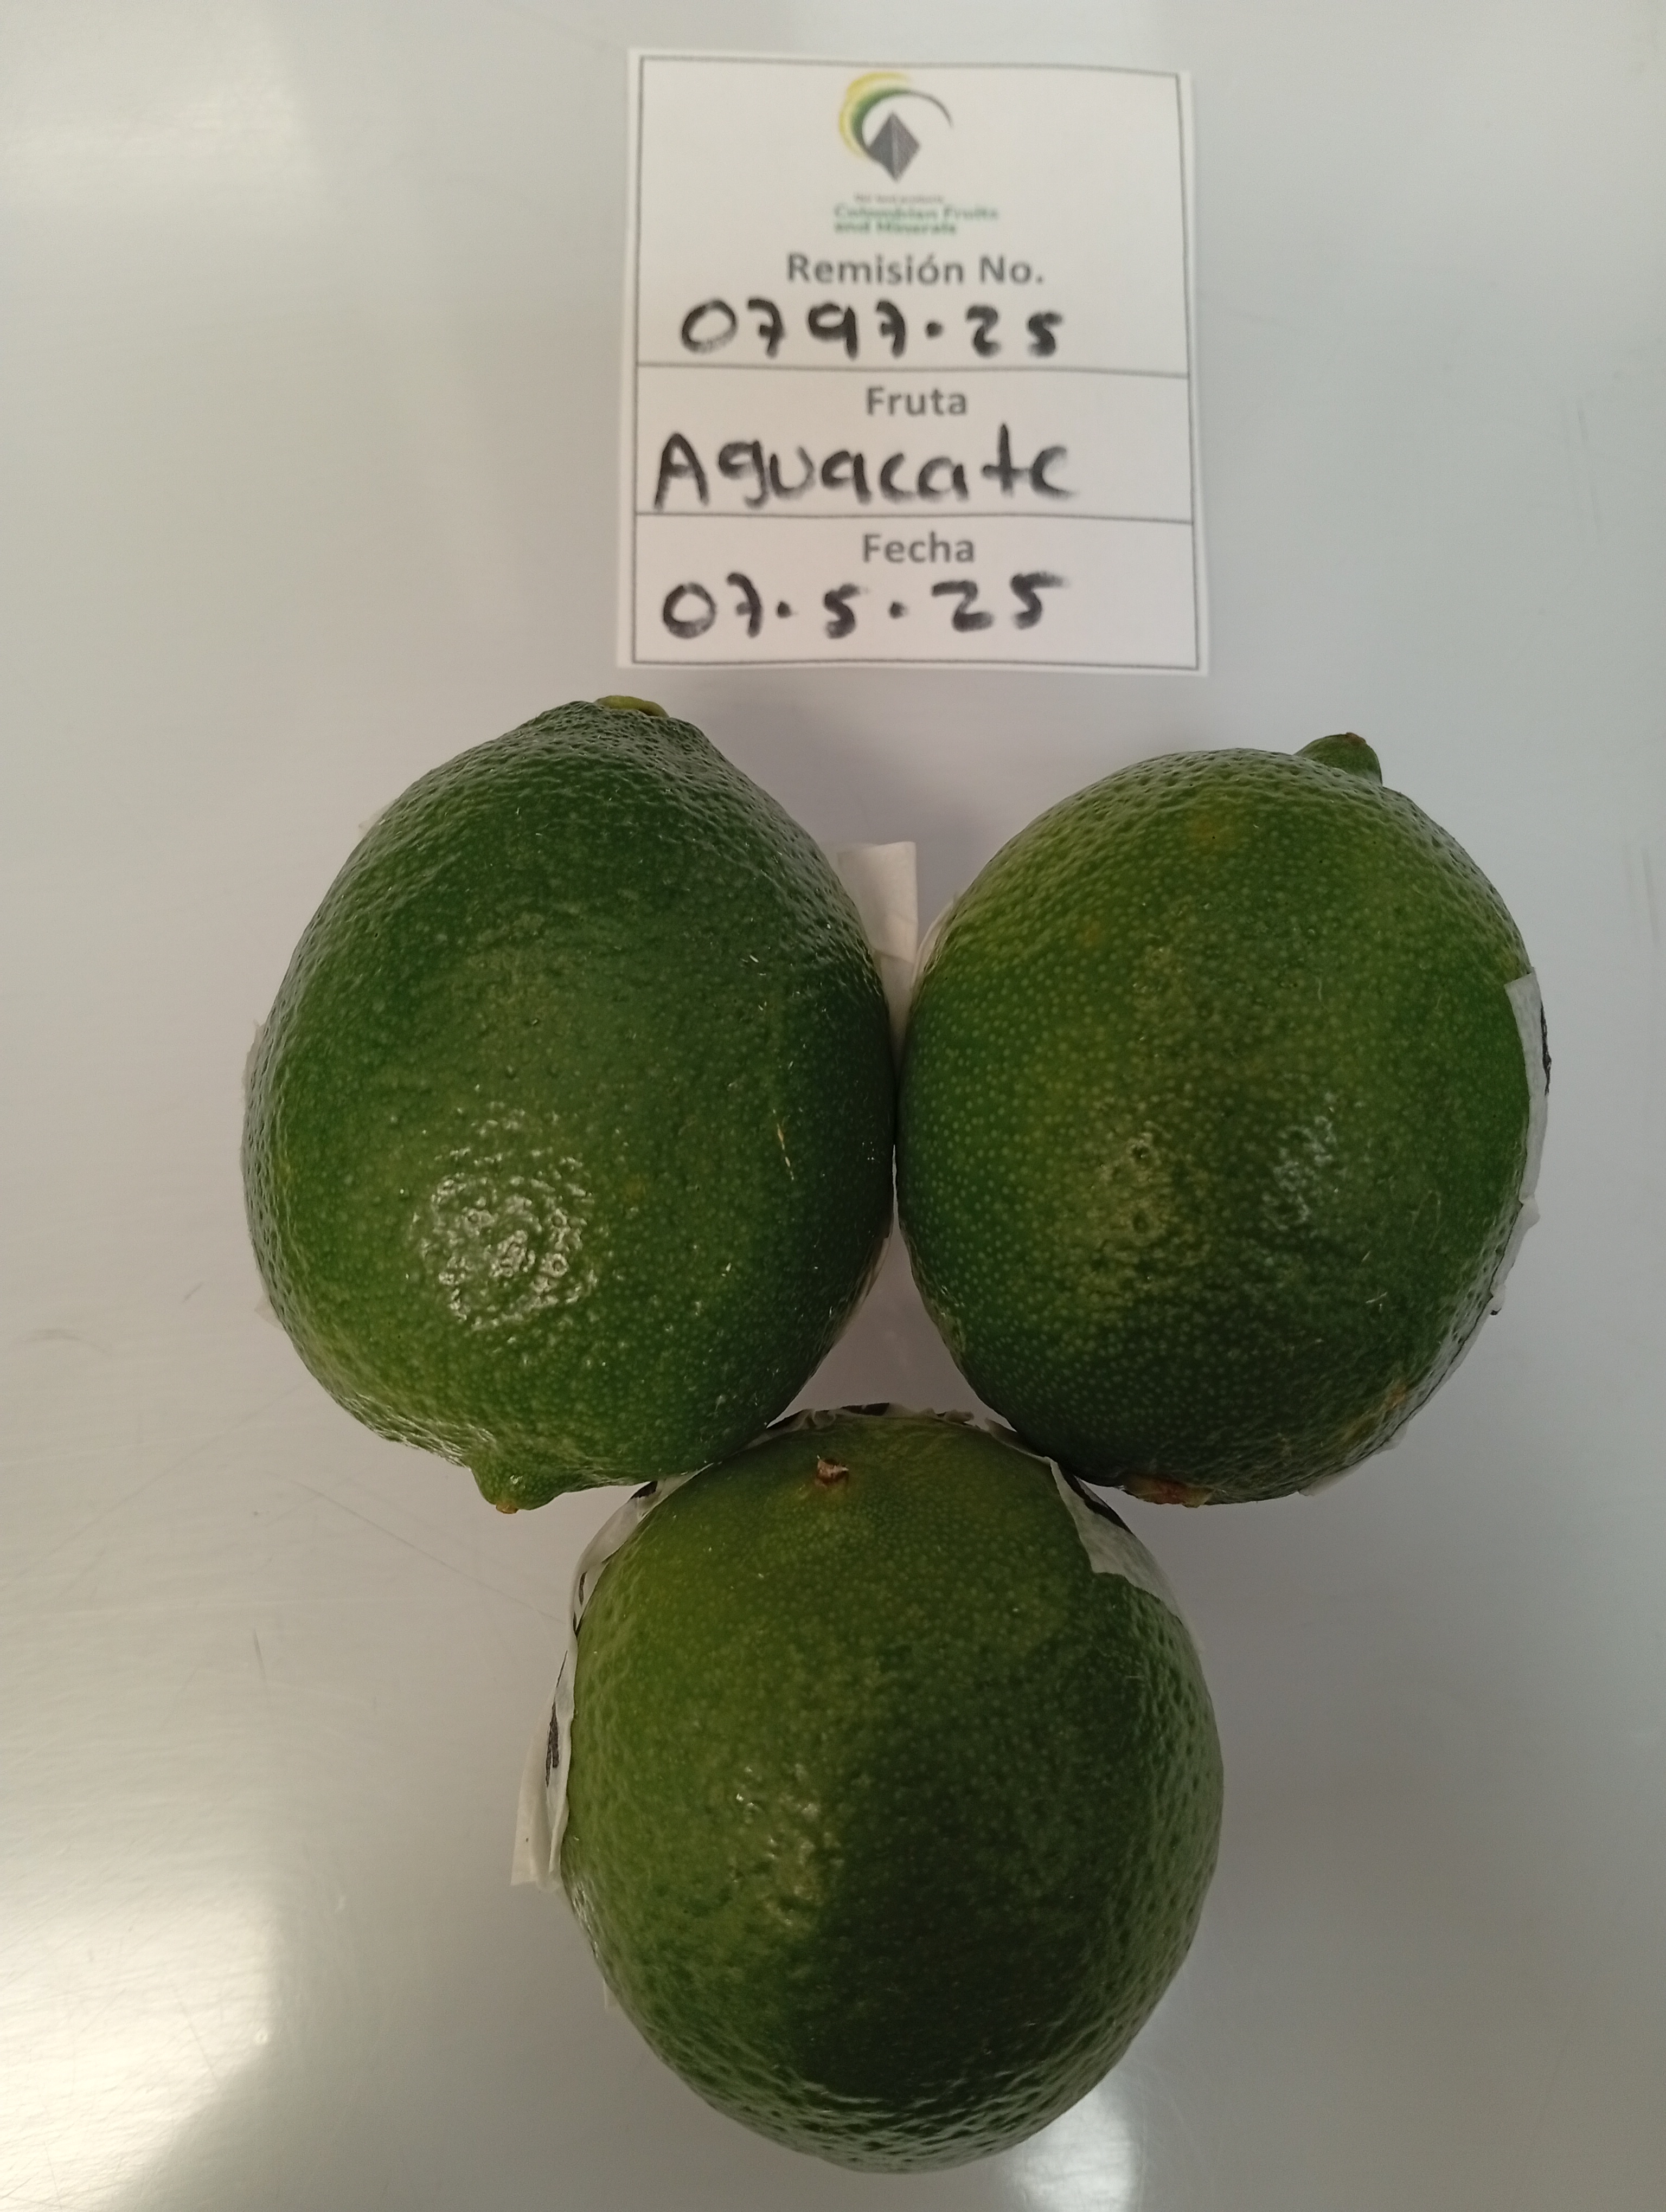 Colombian Fruits
and Minerals
Remisión No.
0797.25
Fruta
Aguacate
Fecha
07.5.25